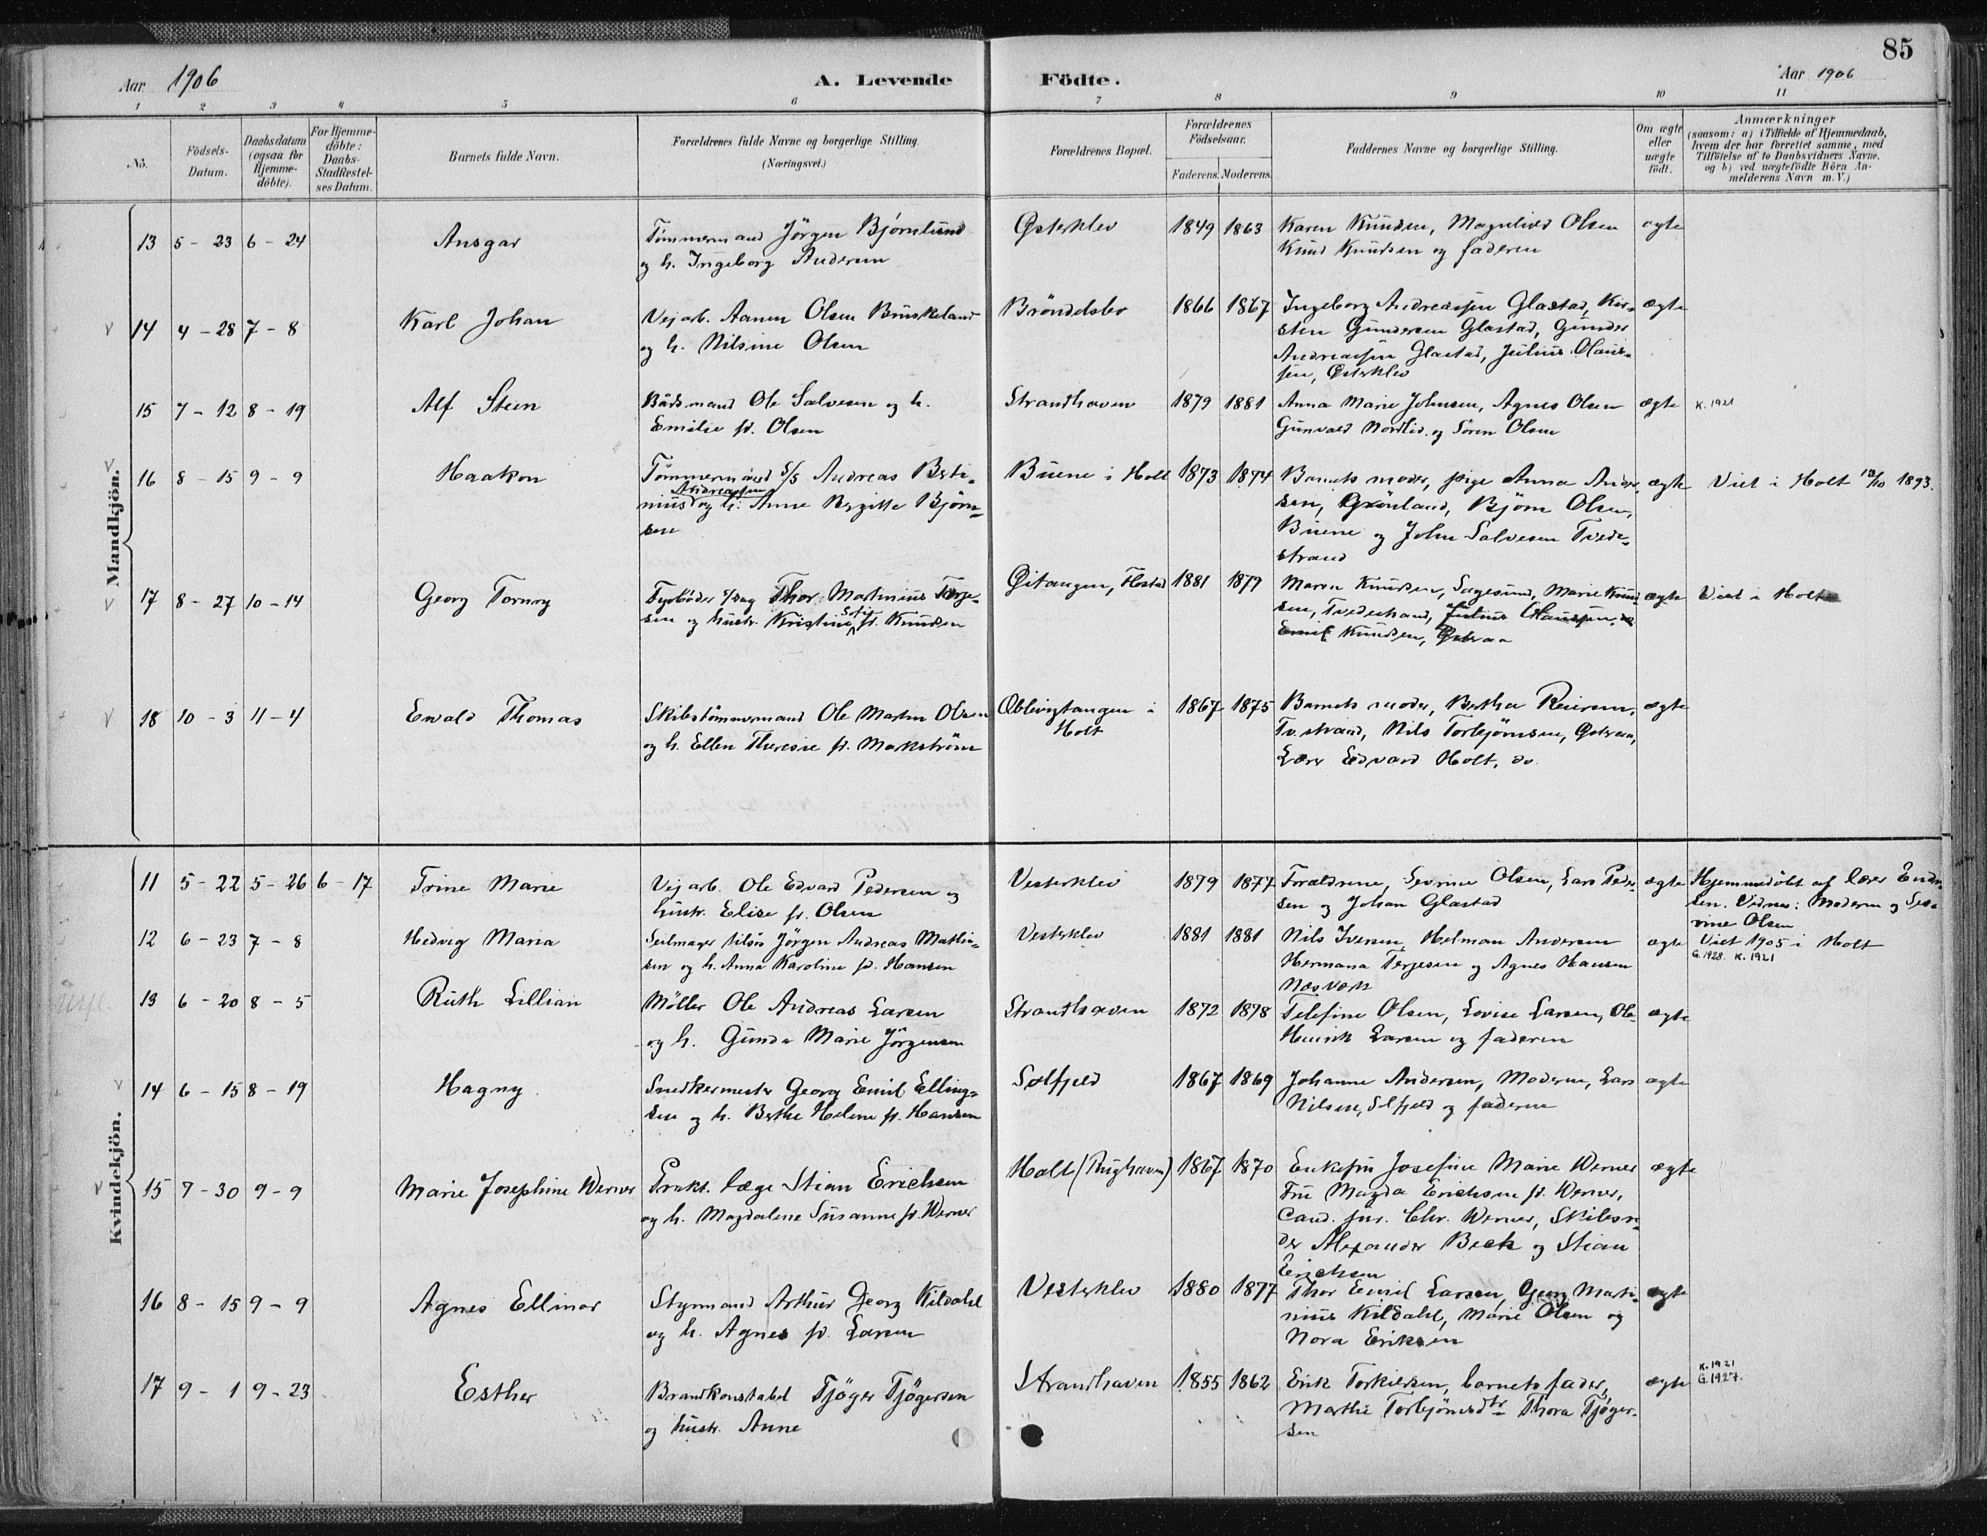 85
Aar 1906
A. Levende Födte.
Aar 1906
1 2 3 4 5 6 7 8 9 10 11
No.
Födsels-
Datum.
Daabsdatum
(ogsaa for
Hjemme-
döbte).
For Hjemme-
döbte:
Daabs-
Stadfæstel-
ses Datum.
Barnets fulde Navn.
Forældrenes fulde Navne og borgerlige Stilling.
(Næringsvei.)
Forældrenes Bopæl.
Forældrenes
Födselsaar.
Faderens. Moderens.
Faddernes Navne og borgerlige Stilling.
Om ægte
eller
uægte
födt.
Anmærkninger
(saasom: a) i Tilfælde af Hjemmedaab,
hvem der har forrettet samme, med
Tilföielse af to Daabsvidners Navne,
og b) ved uægtefödte Börn An-
melderens Navn m. V.)
Mandkjön.
13 5-23 6-24 Ansgar
Tømmermand Jörgen Bjørnlund
og h. Ingeborg Andersen
Østerklev 1849 1863
Karen Knudsen, Magnhild Olsen
Knud Knudsen og faderen
ægte
14 4-28 7-8 Karl Johan
Vejarb. Aanen Olsen Bruskeland
og h. Nilsine Olsen
Brøndelsbo 1866 1867
Ingeborg Andreassen Glastad, Kir-
sten Gundersen Glastad, Gunder
Andreassen Glastad, Julius Olaus-
sen, Østerklev
ægte
15 7-12 8-19 Alf Steen
Bådsmand Ole Salvesen og h.
Emilie f. Olsen
Strandhaven 1879 1881
Anna Marie Johnsen, Agnes Olsen
Gunvald Nordlid og Søren Olsen
ægte K.1921
16 8-15 9-9 Haakon
Tømmermand S/S Andreas Berti-
Andreassen
nius og h. Anne Birgitte Bjørn-
sen
Buene i Holt 1873 1874
Barnets moder, pige Anna Ander-
sen, Grönland, Bjørn Olsen,
Buene og John Salvesen Tvede-
strand
ægte Viet i Holt 13/10 1893.
17 8-27 10-14 Georg Torney
Fyrbøder Thor Martinius Terje-
sen og hustr. Kristine f. Knudsen
Øitangen, Flostad 1881 1879
Maren Knudsen, Sagesund, Marie Knud-
sen, Tvedestrand, Julius Claussen,
Emil Knudsen, Østeraa
ægte Viet i Holt
18 10-3 11-4 Ewald Thomas
Skibstømmermand Ole Martin Olsen
og h. Ellen Therese f. Markström
Øblevigtangen i
Holt
1867 1875
Barnets moder, Bertha Reiersen,
Tv.strand, Nils Torbjørnsen, Østeraa,
Lærer Edvard Holt, do.
ægte
Kvindekjön.
11 5-22 5-26 6-17 Trine Marie
Vejarb. Ole Edvard Pedersen og
hustr. Elise f. Olsen
Vesterklev 1879 1877
Forældrene, Sevrine Olsen, Lars Peder-
sen og Johan Glastad
ægte
Hjemmedöbt af lærer Endre-
sen. Vidner: Moderen og Sev-
rine Olsen
12 6-23 7-8 Hedvig Maria
Seilmager tilsøs Jörgen Andreas Mathi-
sen og h. Anna Karoline f. Hansen
Vesterklev 1881 1881
Nils Iversen, Helman Andersen
Hermana Terjesen og Agnes Hansen
Næsværk
ægte Viet 1905 i Holt
G.1928. K.1921
13 6-20 8-5 Ruth Lillian
Møller Ole Andreas Larsen
og h. Gunda Marie Jörgensen
Strandhaven 1872 1878
Telefine Olsen, Lovise Larsen, Ole
Henrik Larsen og faderen
ægte
14 6-15 8-19 Hagny
Snedkermester Georg Emil Elling-
sen og h. Berthe Helene f. Hansen
Solfjeld 1867 1869
Johanne Andersen, Moderen, Lars
Nilsen, Solfjeld og faderen
ægte
15 7-30 9-9 Marie Josephine Werner
Prakt. læge Stian Erichsen
og h. Magdalene Susanne f. Werner
Holt (Rughaven) 1867 1870
Enkefru Josefine Marie Werner
Fru Magda Erichsen f. Werner,
Cand. jur. Chr. Werner, Skibsre-
der Alexander Beck og Stian
Erichsen
ægte
16 8-15 9-9 Agnes Ellinor
Styrmand Arthur Georg Kildahl
og h. Agnes f. Larsen
Vesterklev 1880 1877
Thor Emil Larsen, Georg Marti-
nius Kildahl, Marie Olsen og
Nora Eriksen
ægte
17 9-1 9-23 Esther
Brandkonstabel Tjøger Tjøgersen
og hustr. Anne
Strandhaven 1855 1862
Erik Torkildsen, barnets fader,
Marthe Torbjørnsdtr Thora Tjøger-
sen
ægte K.1921
G.1927.